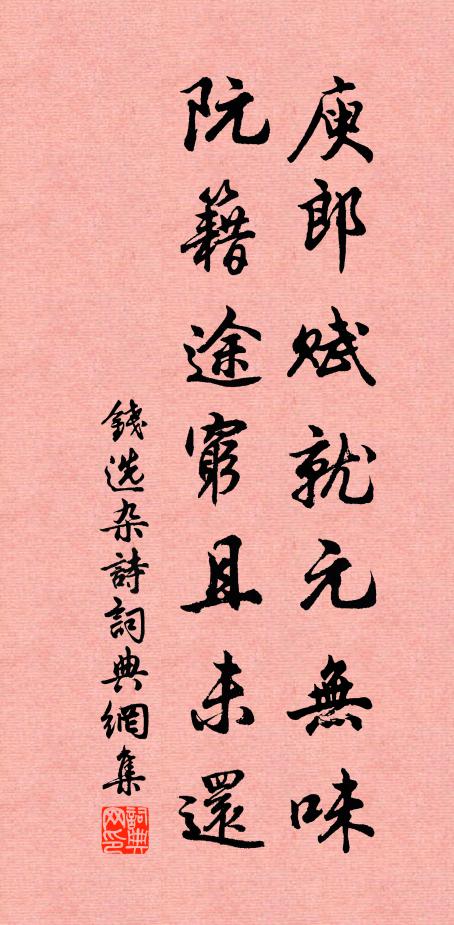 庾郎赋就元無味
阮籍途窮且未還
錢选杂詩詞典網集
詞典网印